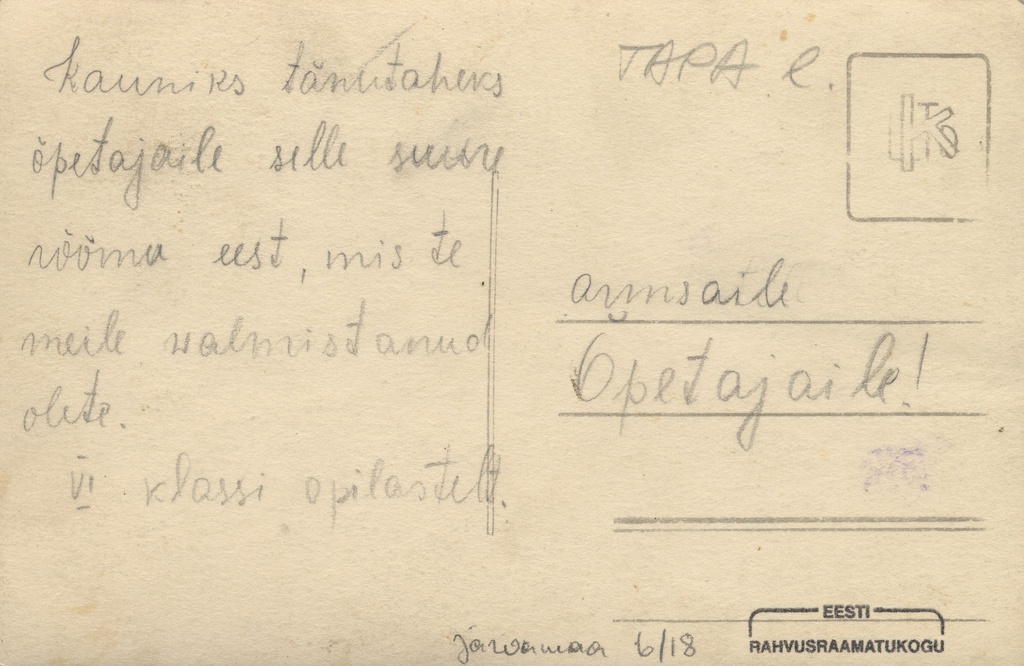 Kauniks tänutäheks
õpetajaile selle suure
rõõmu eest, mis te
meile walmistanud
olete.
VI klassi õpilastelt.
TAPA e.
armsaile
Õpetajaile!
Järvamaa 6/18
EESTI
RAHVUSRAAMATUKOGU